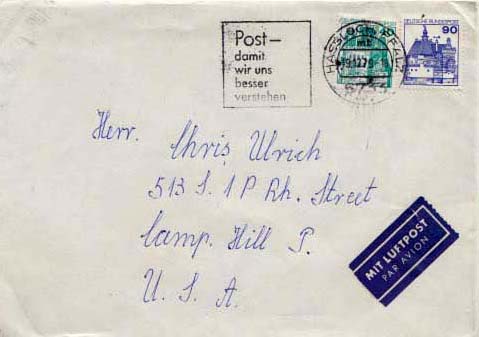 Post—
damit
wir uns
besser
verstehen
HASSLOCH, PFALZ
6733
DEUTSCHE BUNDESPOST
90
Herr. Chris Ulrich
513 S. 1 P Rh. Street
Camp. Hill P.
U. S. A.
MIT LUFTPOST
PAR AVION